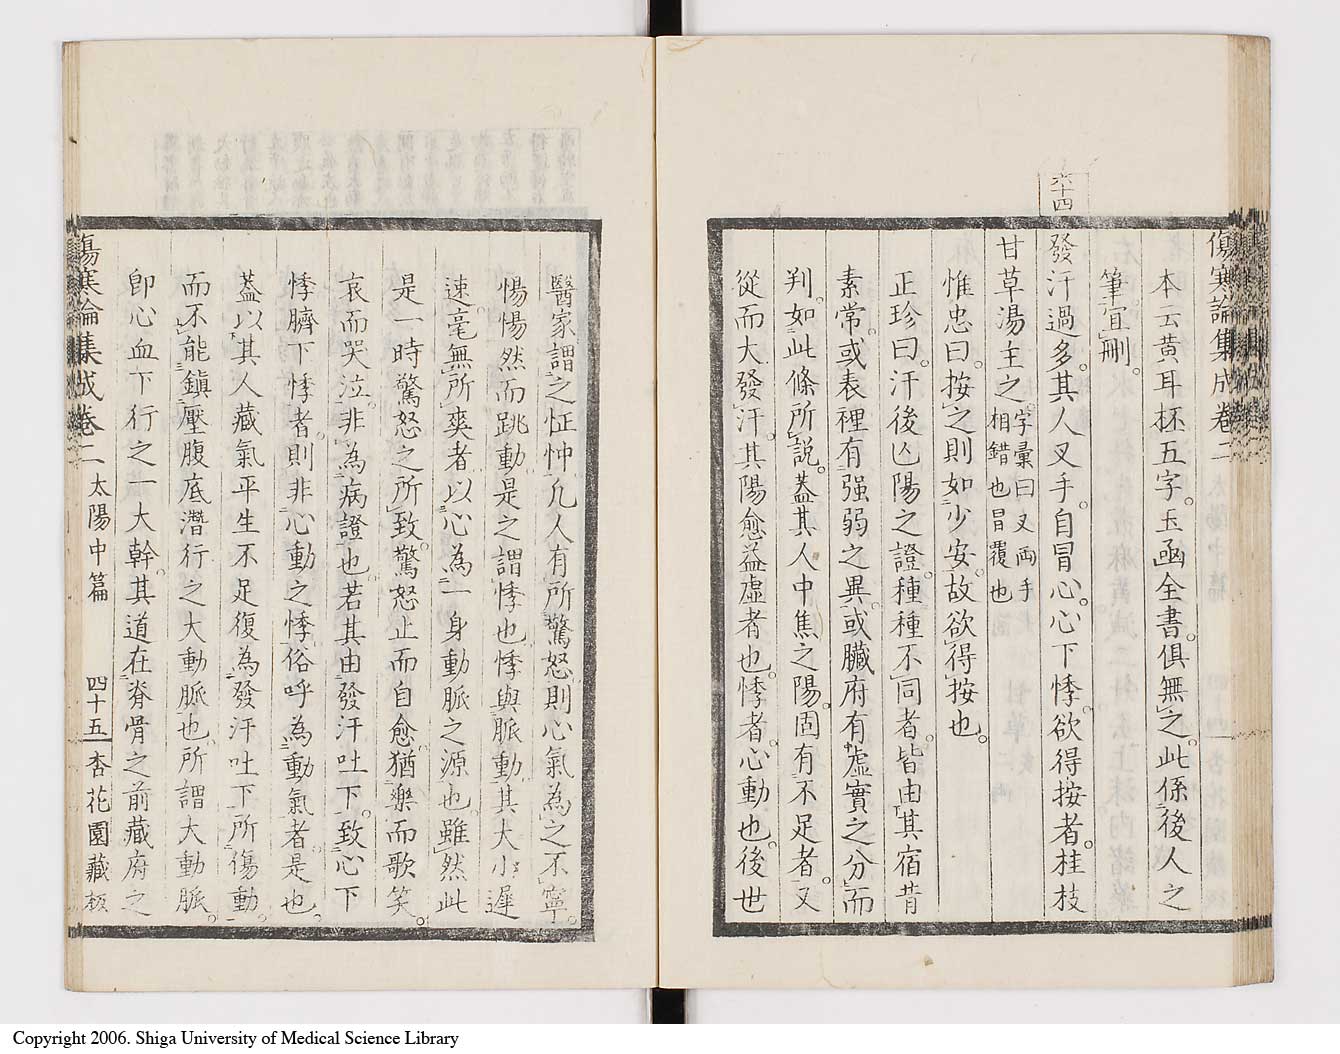 傷寒論集成卷二
本云黄耳杯五字。玉函全書。俱無之。此係後人之
筆。宜刪。
六十四
發汗過多。其人叉手。自冒心。心下悸。欲得按者。桂枝
甘草湯主之。字彙曰叉両手
相錯也冒覆也
惟忠曰。按之則如少安。故欲得按也。
正珍曰。汗後亾陽之證。種種不同者。皆由其宿昔
素常。或表裡有强弱之異。或臟府有虛實之分而
判。如此條所說。蓋其人中焦之陽。固有不足者。又
從而大發汗。其陽愈益虛者也。悸者。心動也。後世
醫家謂之怔忡凢人有所驚怒則心氣為之不寧。
惕惕然而跳動是之謂悸也悸與脈動其大小遲
速。毫無所爽者以心為一身動脈之源也雖然此
是一時驚怒之所致。驚怒止而自愈猶樂而歌笑。
哀而哭泣。非為病證也若其由發汗吐下。致心下
悸臍下悸者。則非心動之悸俗呼為動氣者是也。
蓋以其人藏氣平生不足復為發汗吐下所傷動
而不能鎭壓腹底潛行之大動脈也所謂大動脈。
卽心血下行之一大幹。其道在脊骨之前藏府之
傷寒論集成卷二 太陽中篇 四十五 杏花園藏板
Copyright 2006. Shiga University of Medical Science Library